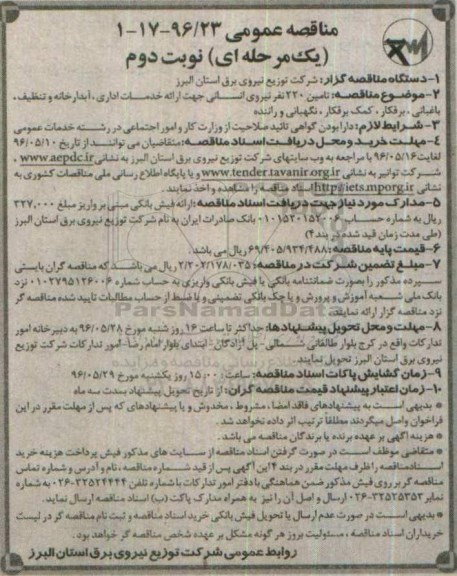 مناقصه عمومی ۹۶/۲۳-۱۷-۱
(یک مرحله ای) نوبت دوم
۱-دستگاه مناقصه گزار: شرکت توزیع نیروی برق استان البرز
۲-موضوع مناقصه: تامین ۲۲۰ نفر نیروی انسانی جهت ارائه خدمات اداری، آبدارخانه و تنظیف،
باغبانی، برقکار، کمک برقکار، نگهبانی و راننده
۳-شرایط لازم: دارا بودن گواهی تائید صلاحیت از وزارت کار و امور اجتماعی در رشته خدمات عمومی
۴-مهلت خرید و محل دریافت اسناد مناقصه: متقاضیان می توانند از تاریخ ۹۶/۰۵/۱۰
لغایت ۹۶/۰۵/۱۶ با مراجعه به وب سایتهای شرکت توزیع نیروی برق استان البرز به نشانی www.aepdc.ir،
شرکت توانیر به نشانی www.tender.tavanir.org.ir و یا پایگاه اطلاع رسانی ملی مناقصات کشوری به
نشانی http://iets.mporg.ir اسناد مناقصه را مشاهده و اخذ نمایند.
۵-مدارک مورد نیاز جهت دریافت اسناد مناقصه: ارائه فیش بانکی مبنی بر واریز مبلغ ۳۲۷,۰۰۰
ریال به شماره حساب ۰۱۰۱۵۲۰۱۵۲۰۰۶ بانک صادرات ایران به نام شرکت توزیع نیروی برق استان البرز
(طی مدت زمان قید شده در بند ۴)
۶-قیمت پایه مناقصه: ۶۹/۴۰۵/۹۳۴/۴۸۸ ریال می باشد.
۷-مبلغ تضمین شرکت در مناقصه: ۲/۲۰۲/۱۷۸/۰۳۵ ریال می باشد که مناقصه گران بایستی
سپرده مذکور را بصورت ضمانتنامه بانکی یا فیش بانکی واریزی به حساب شماره ۰۱۰۲۷۹۵۱۲۶۰۰۶ نزد
بانک ملی شعبه آموزش و پرورش و یا چک بانکی تضمینی و یا ضبط از حساب مطالبات تایید شده مناقصه گر
نزد مناقصه گزار ارائه نمایند.
۸-مهلت و محل تحویل پیشنهادها: حداکثر تا ساعت ۱۶ روز شنبه مورخ ۹۶/۰۵/۲۸ به دبیرخانه امور
تدارکات واقع در کرج بلوار طالقانی شمالی - پل آزادگان - ابتدای بلوار امام رضا - امور تدارکات شرکت توزیع
نیروی برق استان البرز تحویل نمایند.
۹-زمان گشایش پاکات اسناد مناقصه: ساعت ۱۵:۰۰ روز یکشنبه مورخ ۹۶/۰۵/۲۹
۱۰-زمان اعتبار پیشنهاد قیمت مناقصه گران: از تاریخ تحویل پیشنهاد بمدت سه ماه
* بدیهی است به پیشنهادهای فاقد امضا، مشروط، مخدوش و یا پیشنهادهای که پس از مهلت مقرر در این
فراخوان واصل میگردند مطلقا ترتیب اثر داده نخواهد شد.
* هزینه آگهی بر عهده برنده یا برندگان مناقصه می باشد.
* متقاضی موظف است در صورت گرفتن اسناد مناقصه از سایت های مذکور فیش پرداخت هزینه خرید
اسناد مناقصه را ظرف مهلت مقرر در بند ۴ این آگهی پس از قید شماره مناقصه، نام و آدرس و شماره تماس
مناقصه گر بر روی فیش مذکور ضمن هماهنگی با دفتر امور تدارکات با شماره تلفن ۳۳۵۲۴۴۴۴-۰۲۶ به شماره
نمابر ۳۳۵۲۵۳۵۲-۰۲۶ ارسال و اصل آن را نیز به همراه مدارک پاکت (ب) اسناد مناقصه ارسال نماید.
* بدیهی است در صورت عدم ارسال یا تحویل فیش بانکی خرید اسناد مناقصه و ثبت نام مناقصه گر در لیست
خریداران اسناد مناقصه، مسئولیت بروز هر گونه مشکل بر عهده شخص مناقصه گر خواهد بود.
روابط عمومی شرکت توزیع نیروی برق استان البرز
ParsNamadData